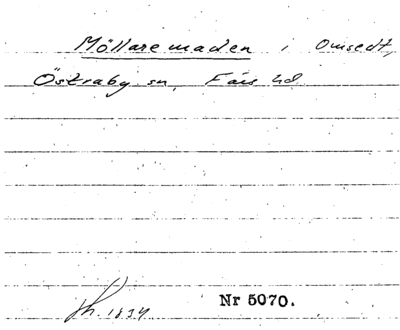 Möllaremaden i Onsedt,
Östraby sn, Färs hd
1834 Nr 5070.